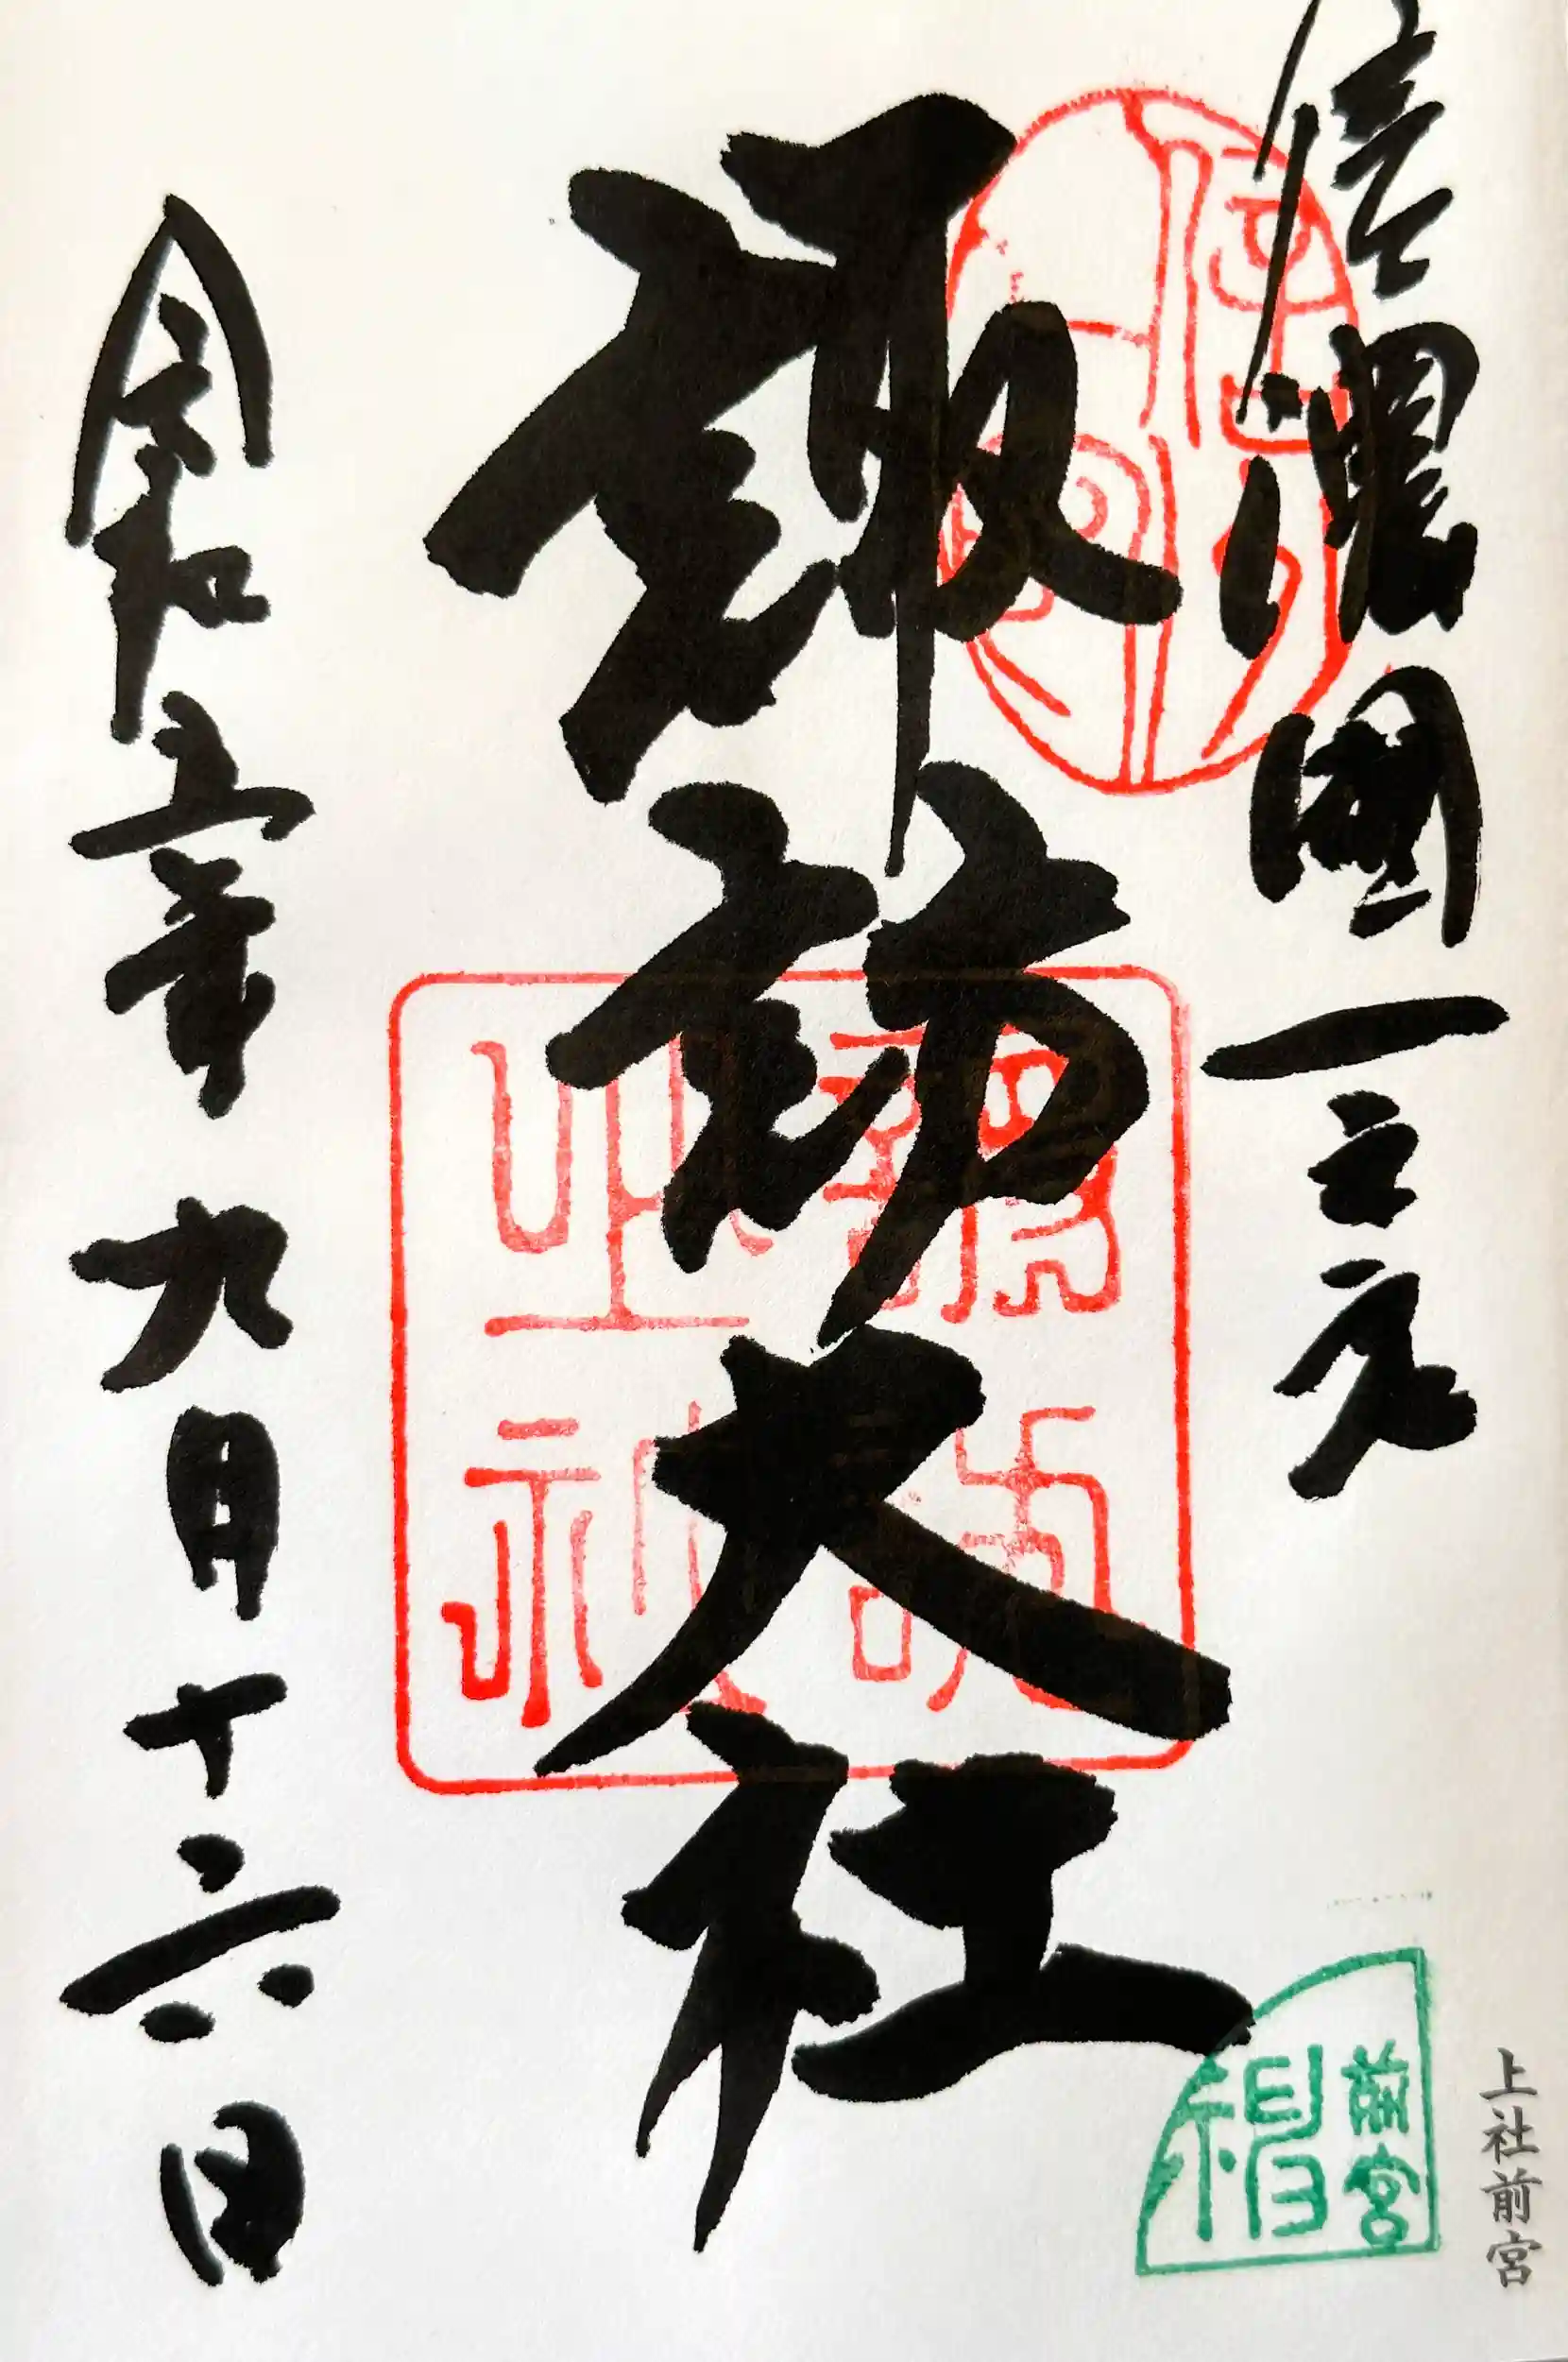 信濃國一之宮
諏訪大社
令和五年九月十六日
前宮
上社前宮